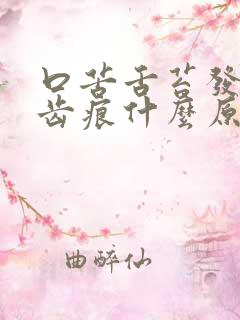 口苦舌苔發
齿痕什麼原
曲醉仙